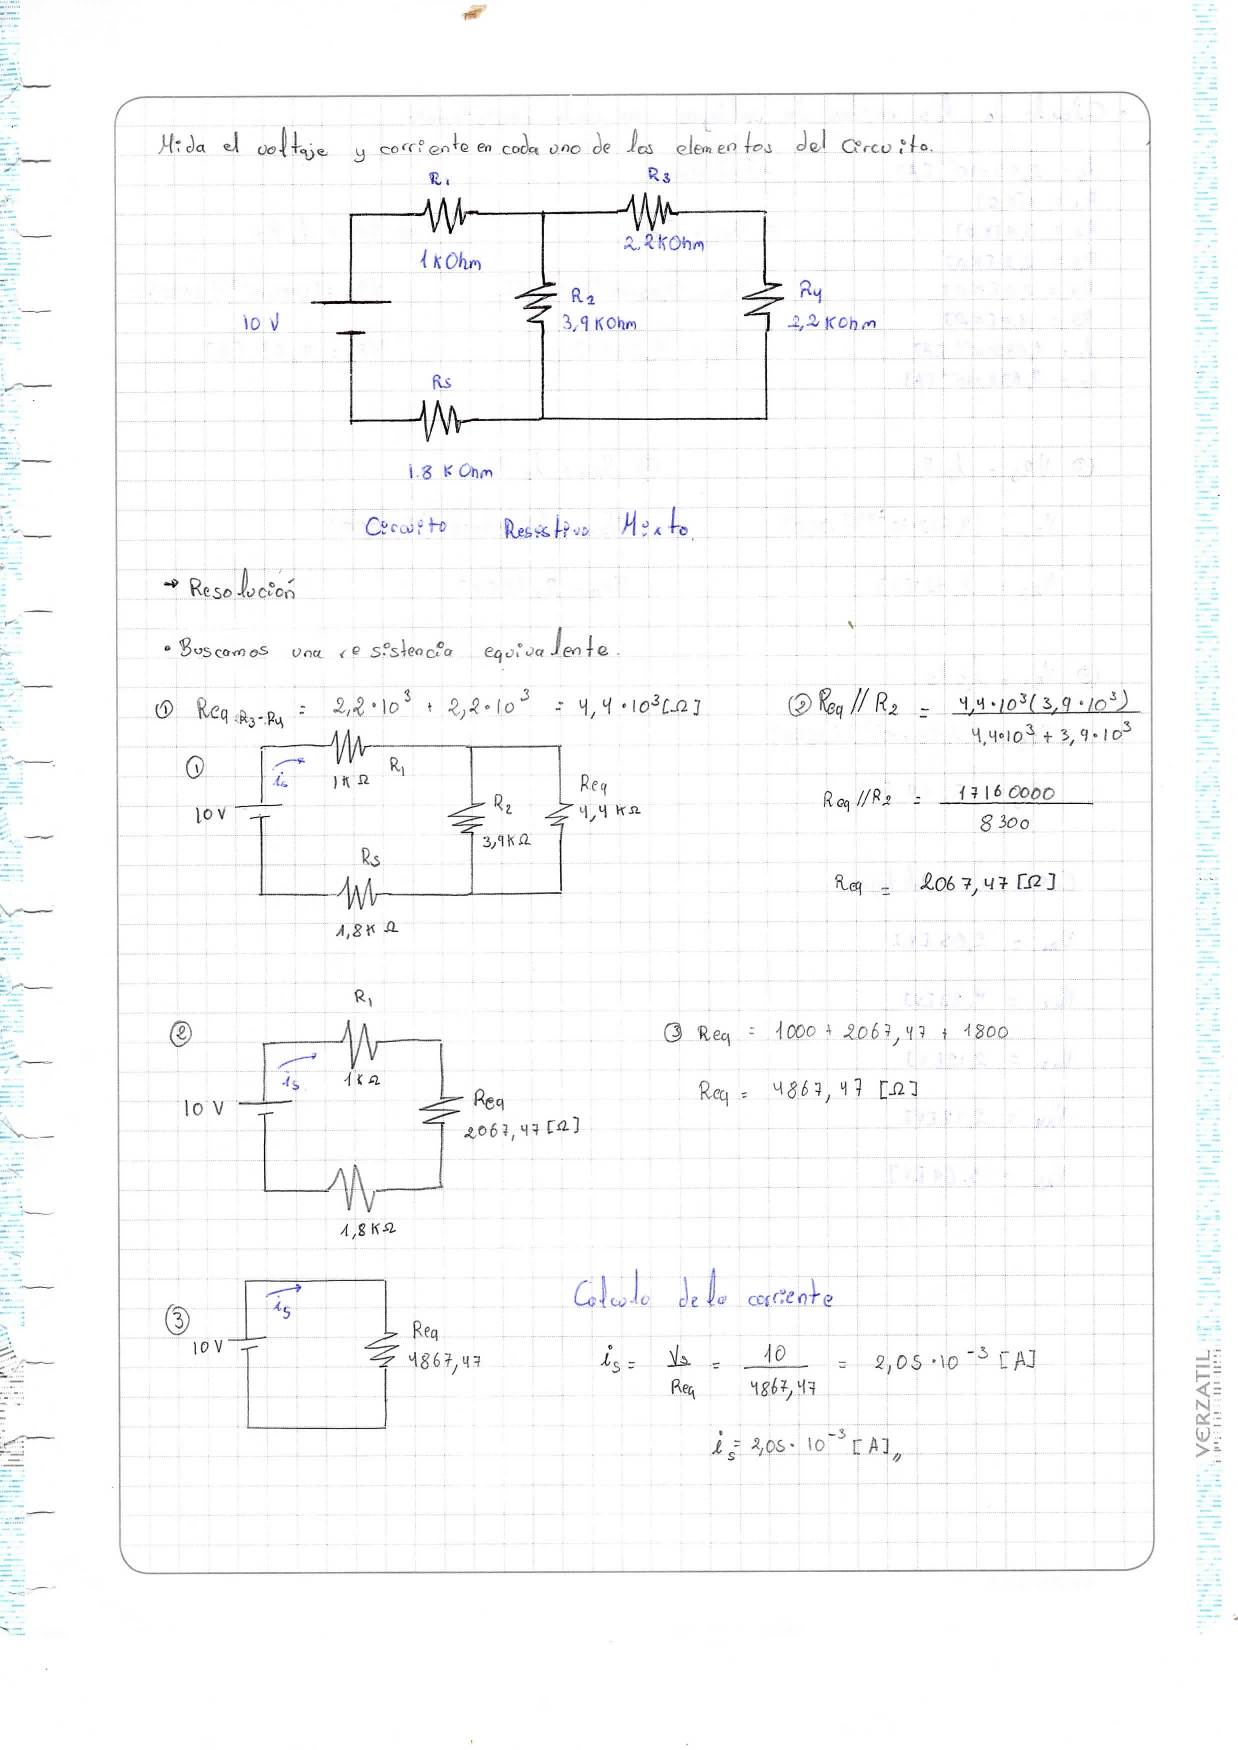 Mida el voltaje y corriente en cada uno de los elementos del circuito.
R1
R3
1 KOhm
2.2 KOhm
10 V
R2
3,9 KOhm
R4
2,2 KOhm
R5
1.8 K Ohm
Circuito Resistivo Mixto.
→ Resolución
• Buscamos una resistencia equivalente.
① Req R3-R4 = 2,2·10³ + 2,2·10³ = 4,4·10³ [Ω]
② Req // R2 = 4,4·10³(3,9·10³)
4,4·10³ + 3,9·10³
①
is
R1
1KΩ
10V
R2
3,9KΩ
Req
4,4 KΩ
R5
1,8K Ω
Req//R2 = 17160000
8300
Req = 2067,47 [Ω]
②
R1
is
1KΩ
10 V
Req
2067,47 [Ω]
1,8 KΩ
③ Req = 1000 + 2067,47 + 1800
Req = 4867,47 [Ω]
③
is
10V
Req
4867,47
Calculo de la corriente
is = Vs = 10 = 2,05·10⁻³ [A]
Req 4867,47
is = 2,05·10⁻³ [A],,
VERZATIL